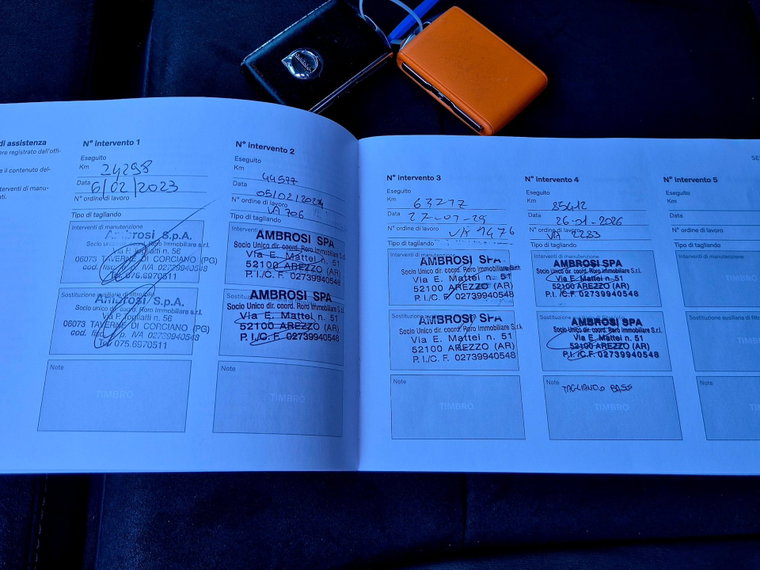 di assistenza
N° intervento 1
Eseguito
Km 24298
Data 6/02/2023
N° ordine di lavoro
Tipo di tagliando
Interventi di manutenzione
Ambrosi S.p.A.
Socio
Via P. Togliatti n. 56
06073 TAVERNE DI CORCIANO (PG)
cod. fisc. P. IVA 02739940548
Tel. 075.6970511
Sostituzione
Ambrosi S.p.A.
Via P. Togliatti n. 56
06073 TAVERNE DI CORCIANO (PG)
cod. fisc. P. IVA 02739940548
Tel. 075.6970511
Note
TIMBRO
N° intervento 2
Eseguito
Km 44577
Data 05/02/2024
N° ordine di lavoro
VA 706
Tipo di tagliando
AMBROSI SPA
Socio Unico dir. coord. Roro Immobiliare s.r.l.
Via E. Mattei n. 51
52100 AREZZO (AR)
P. I./C. F. 02739940548
AMBROSI SPA
Socio Unico dir. coord. Roro Immobiliare s.r.l.
Via E. Mattei n. 51
52100 AREZZO (AR)
P. I./C. F. 02739940548
Note
TIMBRO
N° intervento 3
Eseguito
Km 63717
Data 27-01-25
N° ordine di lavoro
VA 1476
Tipo di tagliando
AMBROSI SPA
Socio Unico dir. coord. Roro Immobiliare
Via E. Mattei n. 51
52100 AREZZO (AR)
P. I./C. F. 02739940548
AMBROSI SPA
Socio Unico dir. coord. Roro Immobiliare s.r.l.
Via E. Mattei n. 51
52100 AREZZO (AR)
P. I./C. F. 02739940548
Note
TIMBRO
N° intervento 4
Eseguito
Km 85412
Data 26-01-2026
N° ordine di lavoro
VA
Tipo di tagliando
Interventi di manutenzione
AMBROSI SPA
Socio Unico dir. coord. Roro Immobiliare s.r.l.
Via E. Mattei n. 51
52100 AREZZO (AR)
P. I./C. F. 02739940548
AMBROSI SPA
Socio Unico dir. coord. Roro Immobiliare S.r.l.
Via E. Mattei n. 51
52100 AREZZO (AR)
P. I./C. F. 02739940548
Note
TAGLIANDO BASE
N° intervento 5
Eseguito
Km
Data
N° ordine di lavoro
Tipo di tagliando
Interventi di manutenzione
TIMBRO
Sostituzione ausiliaria di filtri
TIMBRO
Note
TIMBRO